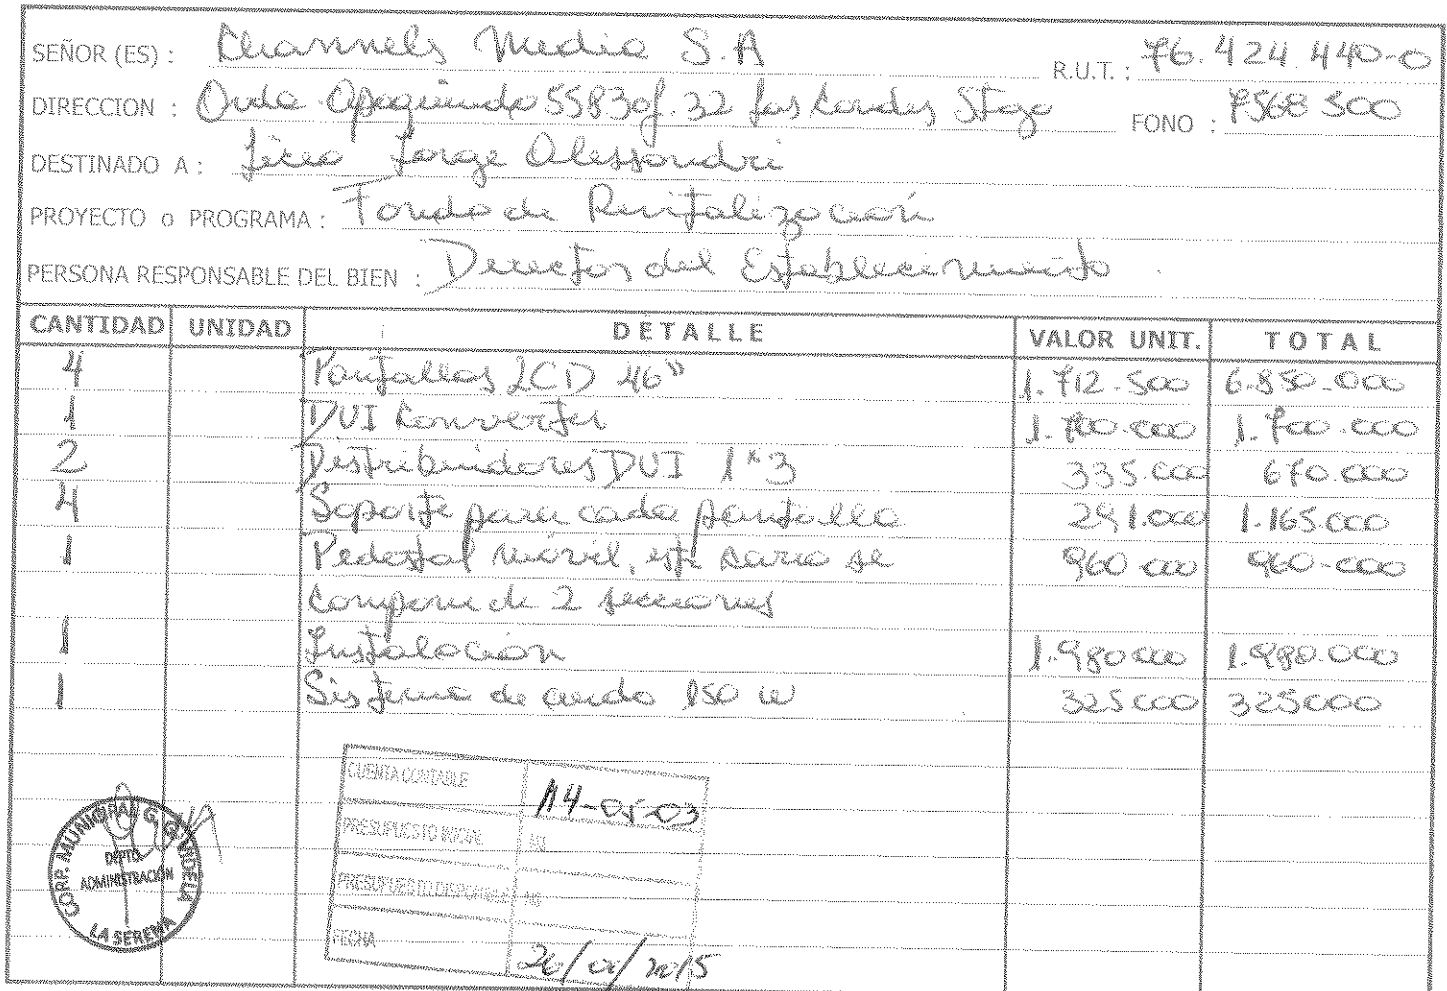 SEÑOR (ES) : Channels Media S.A R.U.T. : 76.424.440-0
DIRECCION : Avda Apoquindo 5583 of. 32 Las Condes Stgo FONO : 7568500
DESTINADO A : Liceo Jorge Alessandri
PROYECTO o PROGRAMA : Fondo de Revitalización
PERSONA RESPONSABLE DEL BIEN : Director del Establecimiento
CANTIDAD UNIDAD DETALLE VALOR UNIT. TOTAL
4 Pantallas LCD 46" 1.712.500 6.850.000
1 DUI Converter 1.700.000 1.700.000
2 Distribuidores DUI 1*3 335.000 670.000
4 Soporte para cada pantalla 291.000 1.165.000
1 Pedestal móvil, este se 960.000 960.000
compone de 2 secciones
1 Instalación 1.980.000 1.980.000
1 Sistema de audo 150 w 325000 325000
CUENTA CONTABLE 114-05-03
PRESUPUESTO INICIAL
PRESUPUESTO DISPONIBLE
FECHA 2015
CORP. MUNICIPAL G. G. VIDELA
DEPTO.
ADMINISTRACIÓN
LA SERENA